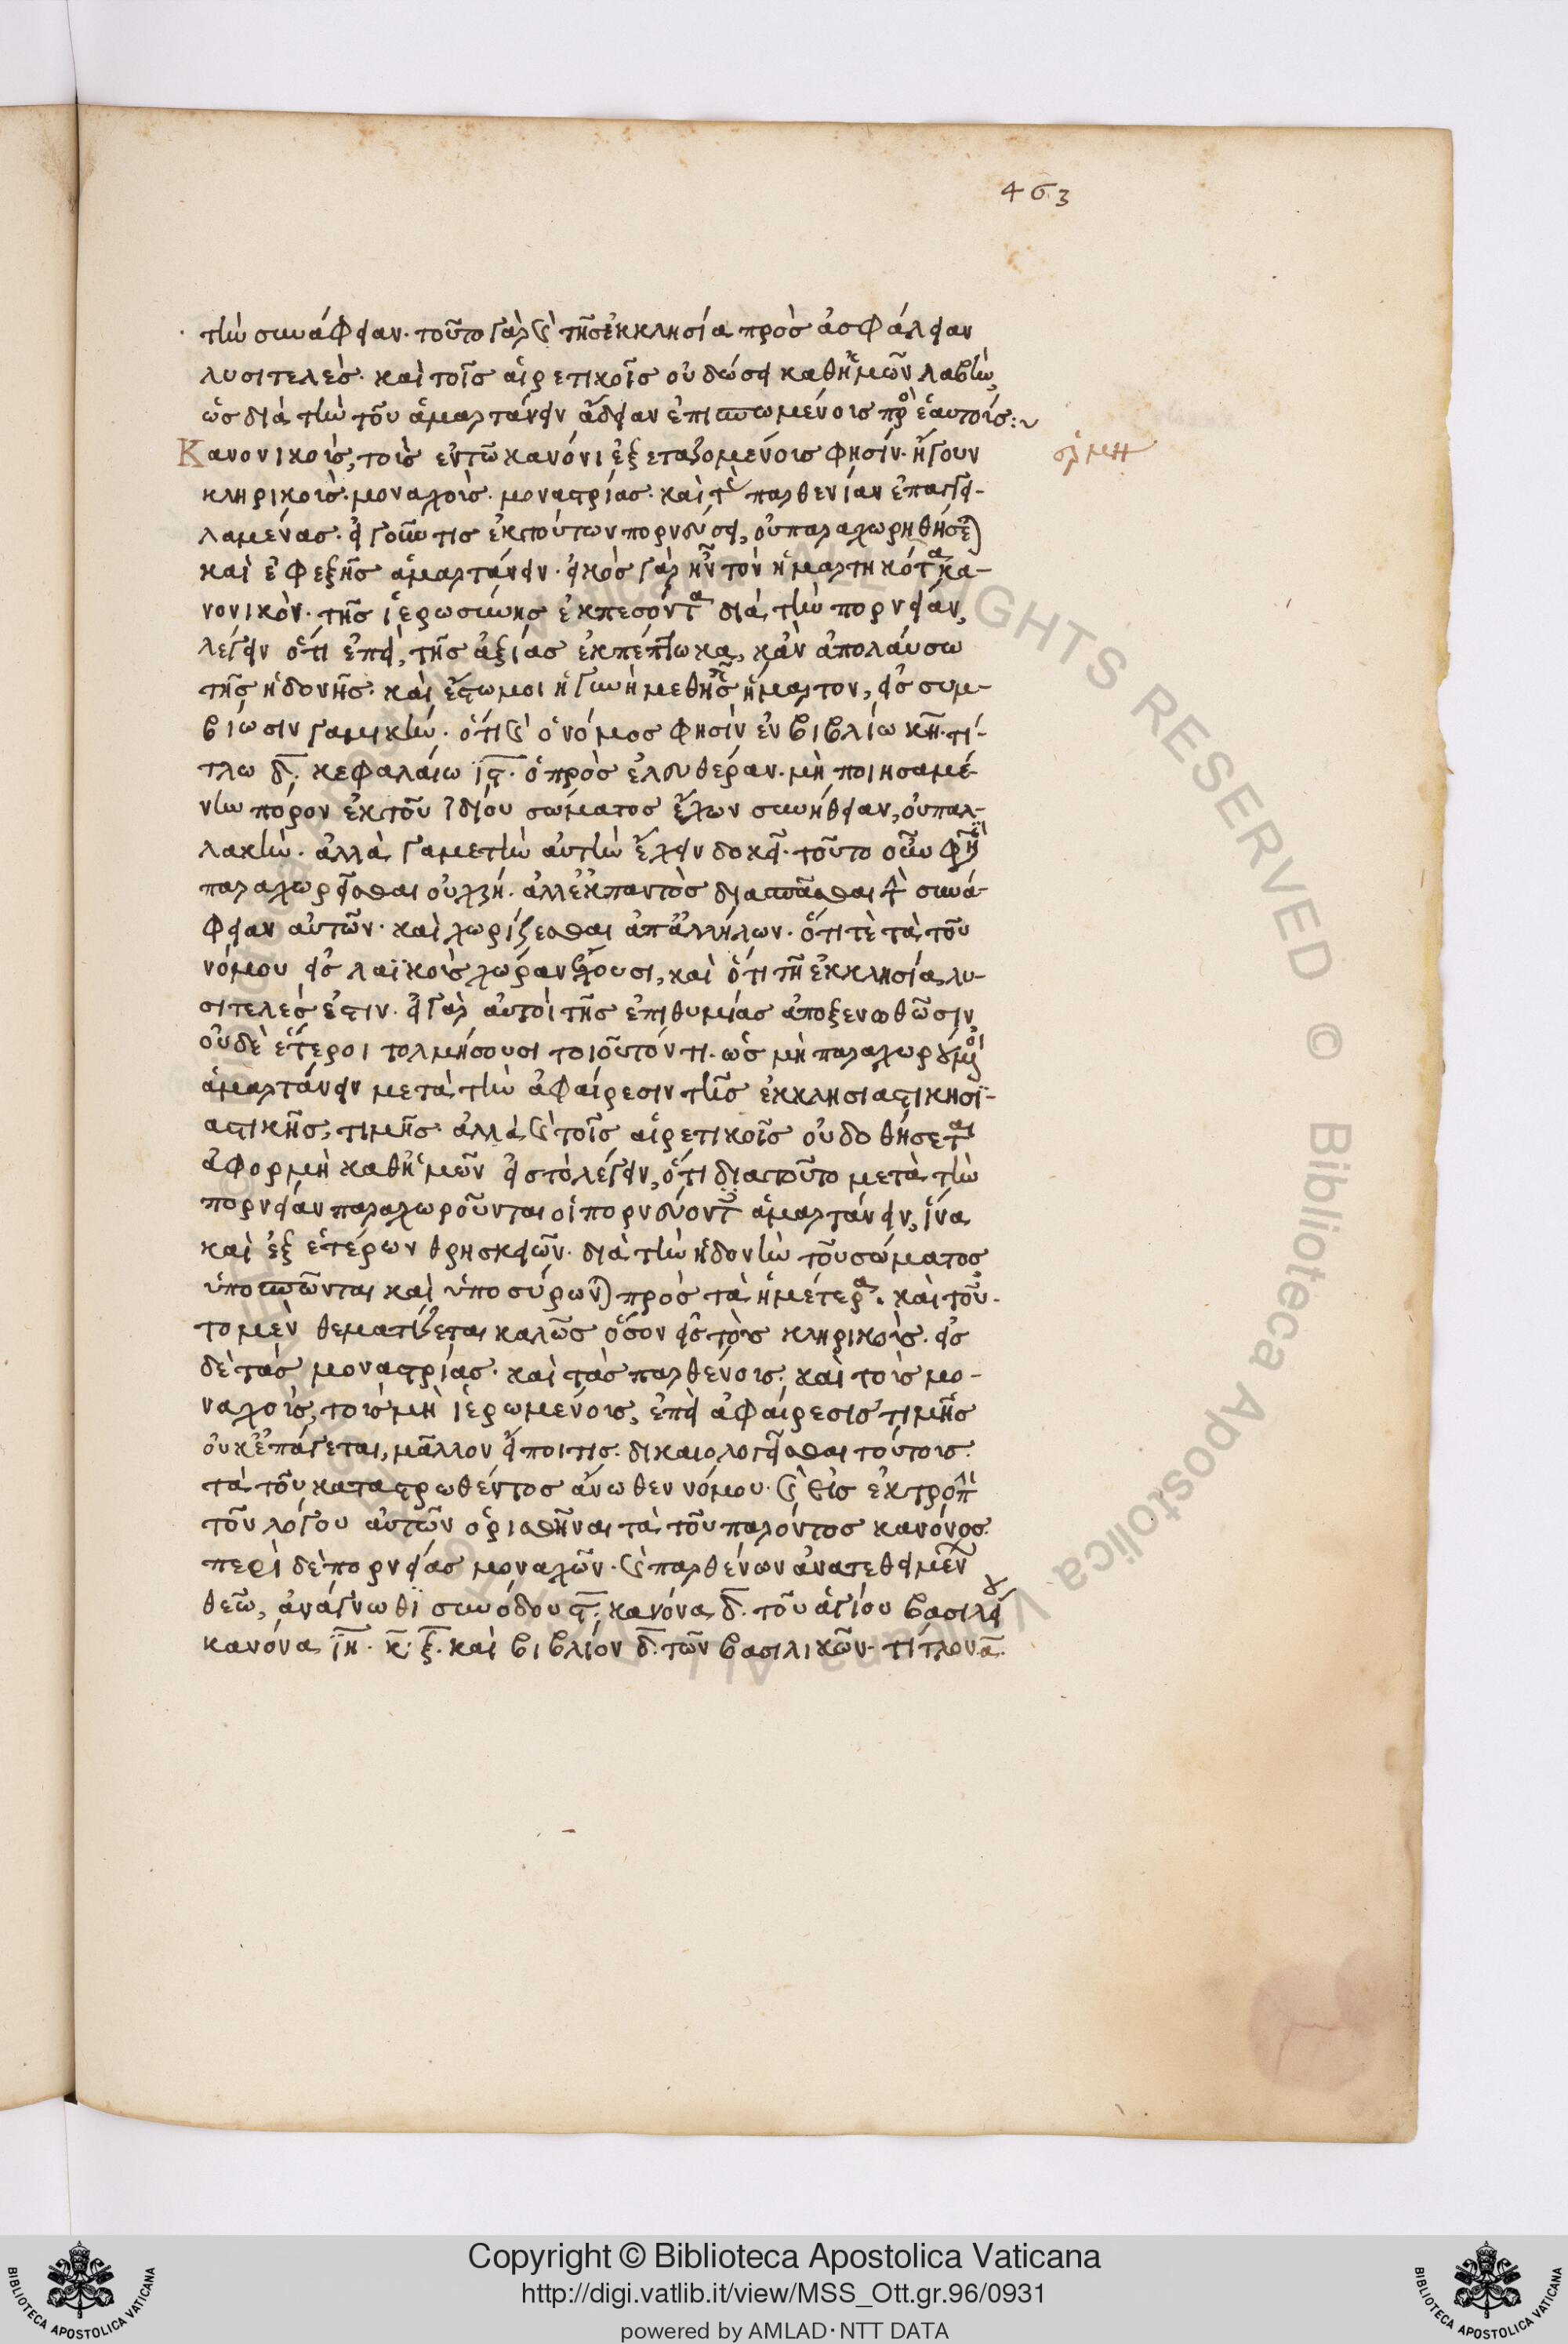 463
τὴν συνάφειαν. τοῦτο γὰρ καὶ τῆς ἐκκλησία πρὸς ἀσφάλειαν
λυσιτελὲς. καὶ τοῖς αἱρετικοῖς οὐ δώσει καθ ἡμῶν λαβὴν,
ὡς διὰ τὴν τοῦ ἁμαρτάνειν ἄδειαν ἐπισπωμένοις πρὸ ἑαυτοίς:~
Κανονικοὺς, τοὺς ἐν τῶ κανόνι ἐξεταζομένους φησίν. ἤγουν
σχ μη
κληρικοὺς. μοναχοὺς. μοναστρίας. καὶ τὰς παρθενίαν ἐπαγγει-
λαμένας. εἰ γοῦν τις ἐκ τούτων πορνεύσει, οὐ παραχωρηθήσεται
καὶ ἐφεξῆς ἁμαρτάνειν. εἰκὸς γὰρ ἦν τὸν ἡμαρτηκότα κα-
νονικὸν. τῆς ἱερωσύνης ἐκπεσόντα διὰ τὴν πορνείαν,
λέγειν ὅτι ἐπεὶ, τῆς ἀξίας ἐκπέπτωκα, κἂν ἀπολαύσω
τῆς ἡδονῆς. καὶ ἔστω μοι ἡ γυνὴ μεθ ἧς ἥμαρτον, εἰς συμ-
βίωσιν γαμικὴν. ὅτι καὶ ὁ νόμος φησὶν ἐν βιβλίω κη. τί-
τλω δ, κεφαλαίω ις. ὁ πρὸς ἐλευθέραν. μὴ ποιησαμέ-
νην πόρον ἐκ τοῦ ἰδίου σώματος ἔχων συνήθειαν, οὐ παλ-
λακὴν. ἀλλὰ γαμετὴν αὐτὴν ἔχειν δοκεῖ. τοῦτο οὖν φησὶ
παραχωρεῖσθαι οὐ χρή. ἀλλ ἐκ παντὸς διασπᾶσθαι τὴν συνά-
φειαν αὐτῶν. καὶ χωρίζεσθαι ἀπ ἀλλήλων. ὅτι τὲ τὰ τοῦ
νόμου εἰς λαϊκοὺς χώραν ἔχουσι, καὶ ὅτι τῆ ἐκκλησία λυ-
σιτελές ἐστιν. εἰ γὰρ αὐτοὶ τῆς ἐπιθυμίας ἀποξενωθῶσιν
οὐδὲ ἕτεροι τολμήσουσι τοιοῦτόν τι. ὡς μὴ παραχωρούμενοι
ἁμαρτάνειν μετὰ τὴν ἀφαίρεσιν τῆς ἐκκλησιαστικησι-
αστικῆς, τιμῆς. ἀλλὰ καὶ τοῖς αἱρετικοῖς οὐ δοθήσεται
ἀφορμὴ καθ ἡμῶν εἰς τὸ λέγειν, ὅτι διατοῦτο μετὰ τὴν
πορνείαν παραχωροῦνται οἱ πορνεύοντες ἁμαρτάνειν, ἵνα
καὶ ἐξ ἑτέρων θρησκειῶν. διὰ τὴν ἡδονὴν τοῦ σώματος
ὑποσπῶνται καὶ ὑποσύρωνται πρὸς τὰ ἡμέτερα. καὶ τοῦ-
το μὲν θεματίζεται καλῶς ὅσον εἰς τοὺς κληρικοὺς. εἰς
δὲ τὰς μοναστρίας. καὶ τὰς παρθένους. καὶ τοὺς μο-
ναχοὺς, τοὺς μὴ ἱερωμένους, ἐπεὶ ἀφαίρεσις τιμῆς
οὐκ ἐπάγεται, μᾶλλον εἴποι τις. δικαιολογεῖσθαι τούτοις
τὰ τοῦ καταστρωθέντος ἄνωθεν νόμου. καὶ εἰς ἐκτροπὴν
τοῦ λόγου αὐτῶν ὁρισθῆναι τὰ τοῦ παρόντος κανόνος.
περὶ δὲ πορνείας μοναχῶν. καὶ παρθένων ἀνατεθειμένων
θεῶ, ἀνάγνωθι συνόδου ς. κανόνα δ. τοῦ ἁγίου βασιλείου
κανόνα ιη. κ. ξ. καὶ βιβλίον δ. τῶν βασιλικῶν. τίτλον α.
Copyright © Biblioteca Apostolica Vaticana
http://digi.vatlib.it/view/MSS_Ott.gr.96/0931
powered by AMLAD·NTT DATA